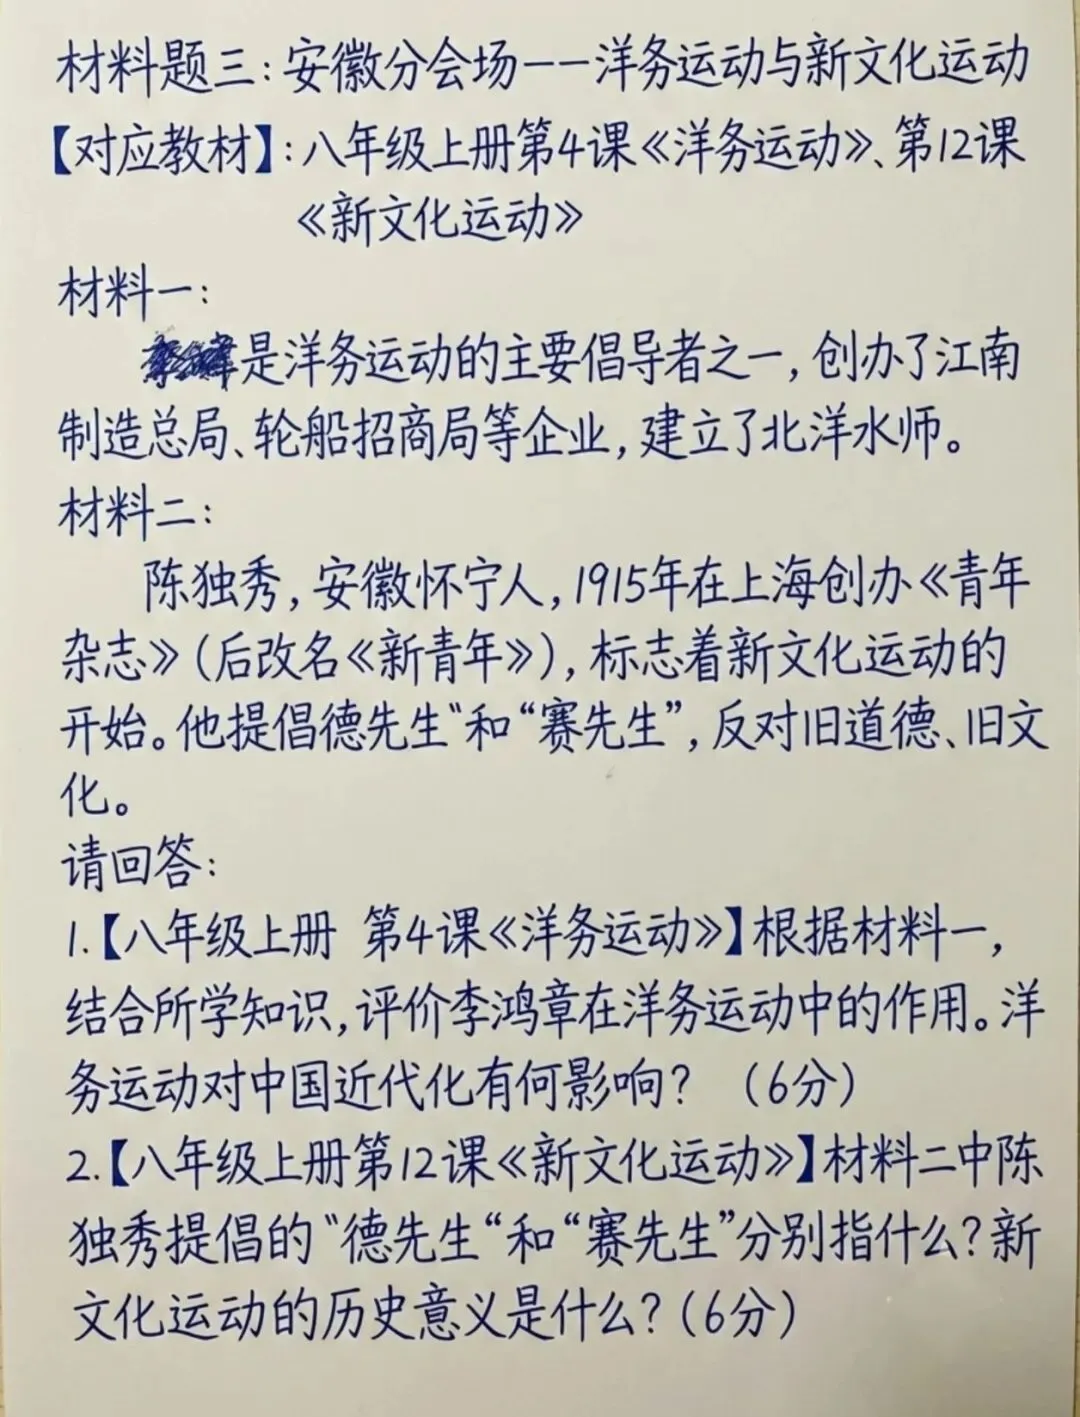 材料题三:安徽分会场——洋务运动与新文化运动
【对应教材】:八年级上册第4课《洋务运动》、第12课
《新文化运动》
材料一:
是洋务运动的主要倡导者之一,创办了江南
制造总局、轮船招商局等企业,建立了北洋水师。
材料二:
陈独秀,安徽怀宁人,1915年在上海创办《青年
杂志》(后改名《新青年》),标志着新文化运动的
开始。他提倡德先生“和“赛先生”,反对旧道德、旧文
化。
请回答:
1.【八年级上册 第4课《洋务运动》】根据材料一,
结合所学知识,评价李鸿章在洋务运动中的作用。洋
务运动对中国近代化有何影响? (6分)
2.【八年级上册第12课《新文化运动》】材料二中陈
独秀提倡的“德先生“和“赛先生”分别指什么?新
文化运动的历史意义是什么?(6分)